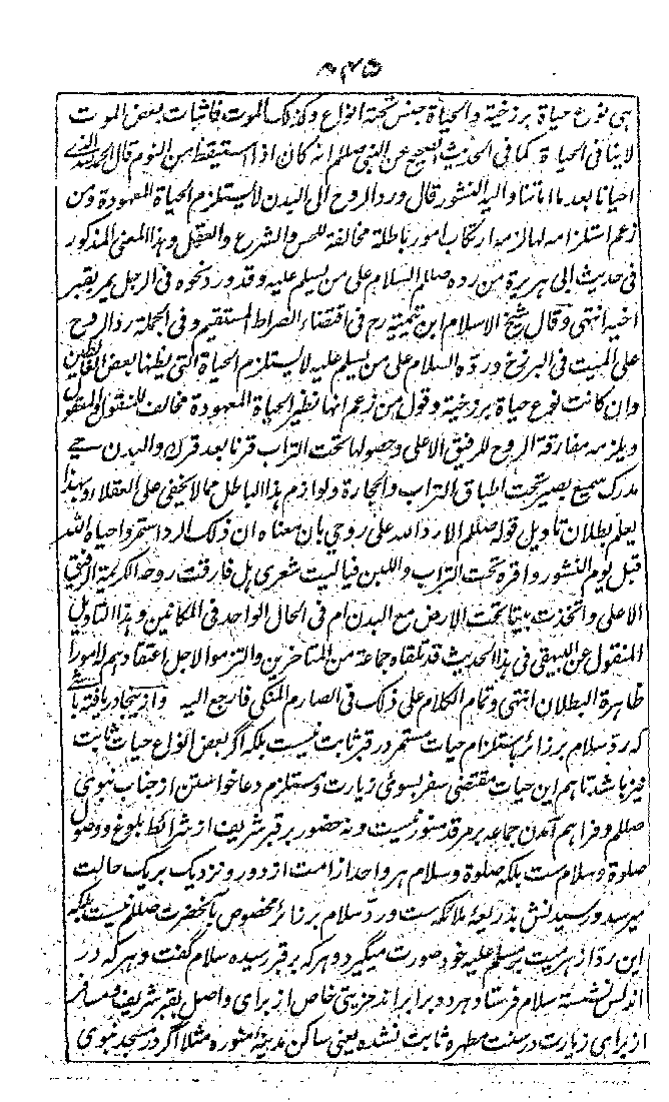 ۴۳۵
ہی نوع حیاة برزخیة والحیاة جنس تحته انواع وکذلک الموت فاثبات بعض الموت
لاینافی الحیاة کما فی الحدیث الصحیح عن النبی صللم انه کان اذا استیقظ من النوم قال الحمد لله الذی
احیانا بعد ما اماتنا والیه النشور قال ورد الروح الی البدن لا یستلزم الحیاة المعهودة ومن
زعم استلزامه لها لزمه ارتکاب امور باطلة مخالفة للحس والشرع والعقل وهذا المعنی المذکور
فی حدیث ابی هریرة من رده صللم السلام علی من یسلم علیه وقد ورد نحوه فی الرجل یمر بقبر
اخیه انتهی وقال شیخ الاسلام ابن تیمیة رح فی اقتضاء الصراط المستقیم وفی الجملة رد الروح
علی المیت فی البرزخ ورده السلام علی من یسلم علیه لا یستلزم الحیاة التی یظنها بعض الغالطین
وان کانت نوع حیاة برزخیة وقول من زعم انها نظیر الحیاة المعهودة مخالف للمنقول والمعقول
ویلزمه مفارقة الروح للرفیق الاعلی وحصولها تحت التراب قرنا بعد قرن والبدن حی
مدرک سمیع بصیر تحت اطباق التراب والحجارة ولوازم هذا الباطل مما لا یخفی علی العقلاء وبهذا
یعلم بطلان تاویل قوله صللم الا رد الله علی روحی بان معناه ان ذلک الرد استمر واحیاه الله
قبل یوم النشور واقره تحت التراب واللبن فیالیت شعری هل فارقت روحه الکریمة الرفیق
الاعلی واتخذت بیتا تحت الارض مع البدن ام فی الحال الواحد فی المکانین وهذا التاویل
المنقول عن البیهقی فی هذا الحدیث قد تلقاه جماعة من المتاخرین والتزموا لاجل اعتقادهم لها امورا
ظاهرة البطلان انتهی وتمام الکلام علی ذلک فی الصارم المنکی فارجع الیه وازینجا دریافته باشی
که رد سلام بر زائر باستلزام حیات مستمر در قبر ثابت نیست بلکه اگر بعض انواع حیات ثابت
نیز باشد تاهم این حیات مقتضی سفر بسوئ زیارت ومستلزم دعا خواستن از جناب نبوی
صللم وفراهم آمدن جماعه بر مرقد منور نیست ونه حضور بر قبر شریف از شرائط بلوغ ووصول
صلوة وسلام ست بلکه صلوة وسلام هر واحد از امت از دور ونزدیک بر یک حالت
میرسد ورسیدنش بذریعهٔ ملائکه ست ورد سلام بر زائر مخصوص بآنحضرت صللم نیست بلکه
این رد از هر میت بر مسلم علیه خود صورت میگیرد وهر که بر قبر رسیده سلام گفت وهر که در
اندلس نشسته سلام فرستاد هر دو برابر اند مزیتی خاص از برای واصل بقبر شریف ومسافر
از برای زیارت در سنت مطهره ثابت نشده یعنی ساکن مدینهٔ منوره مثلا اگر در مسجد نبوی